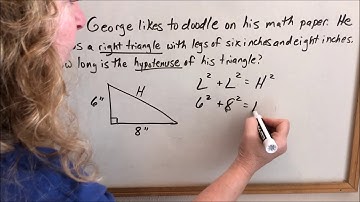 George likes to doodle on his math paper. He
s a right triangle with legs of six inches and eight inches.
w long is the hypotenuse of his triangle?
L² + L² = H²
H
6"
6² + 8² =
8"